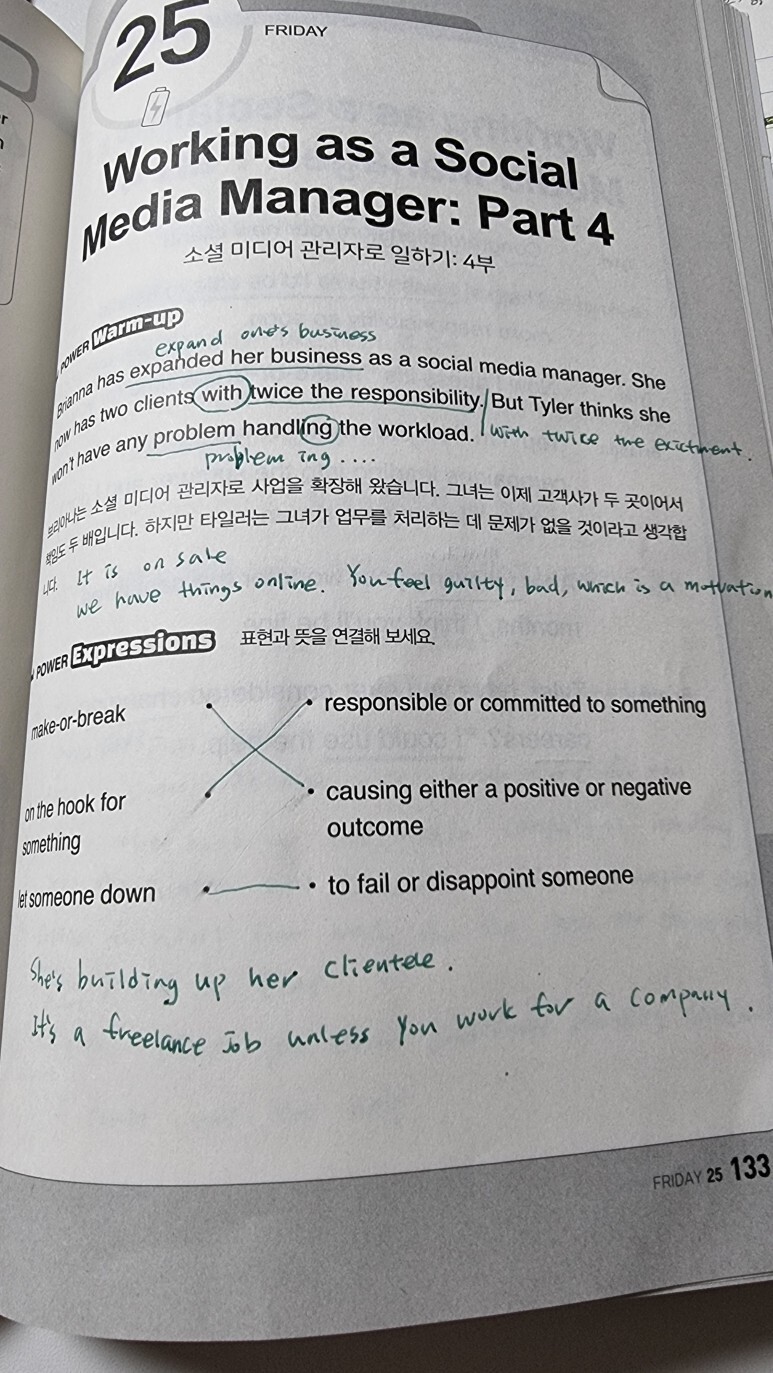 25
FRIDAY
Working as a Social
Media Manager: Part 4
소셜 미디어 관리자로 일하기: 4부
POWER Warm-up
expand one's business
Brianna has expanded her business as a social media manager. She
now has two clients with twice the responsibility. But Tyler thinks she
won't have any problem handling the workload.
with twice the exictment.
problem ing ....
브리아나는 소셜 미디어 관리자로 사업을 확장해 왔습니다. 그녀는 이제 고객사가 두 곳이어서
책임도 두 배입니다. 하지만 타일러는 그녀가 업무를 처리하는 데 문제가 없을 것이라고 생각합
니다.
It is on sale
we have things online. You feel guilty, bad, which is a motvation
POWER Expressions 표현과 뜻을 연결해 보세요.
make-or-break
• responsible or committed to something
on the hook for
something
• causing either a positive or negative
outcome
let someone down
• to fail or disappoint someone
She's building up her clientele.
It's a freelance job unless you work for a company.
FRIDAY 25 133